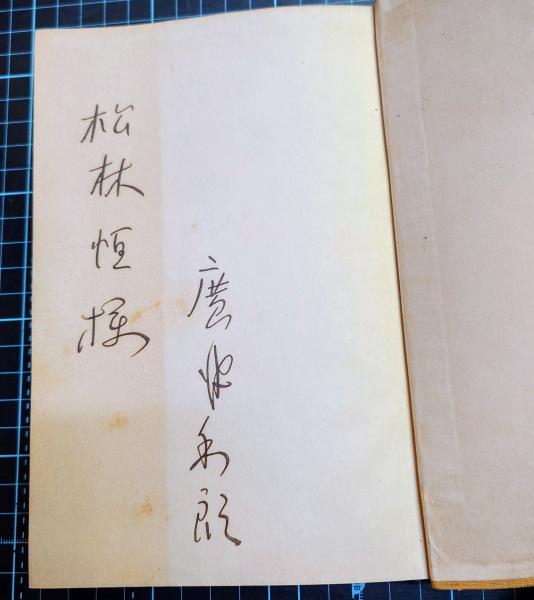 廣津和郎
松林恒様